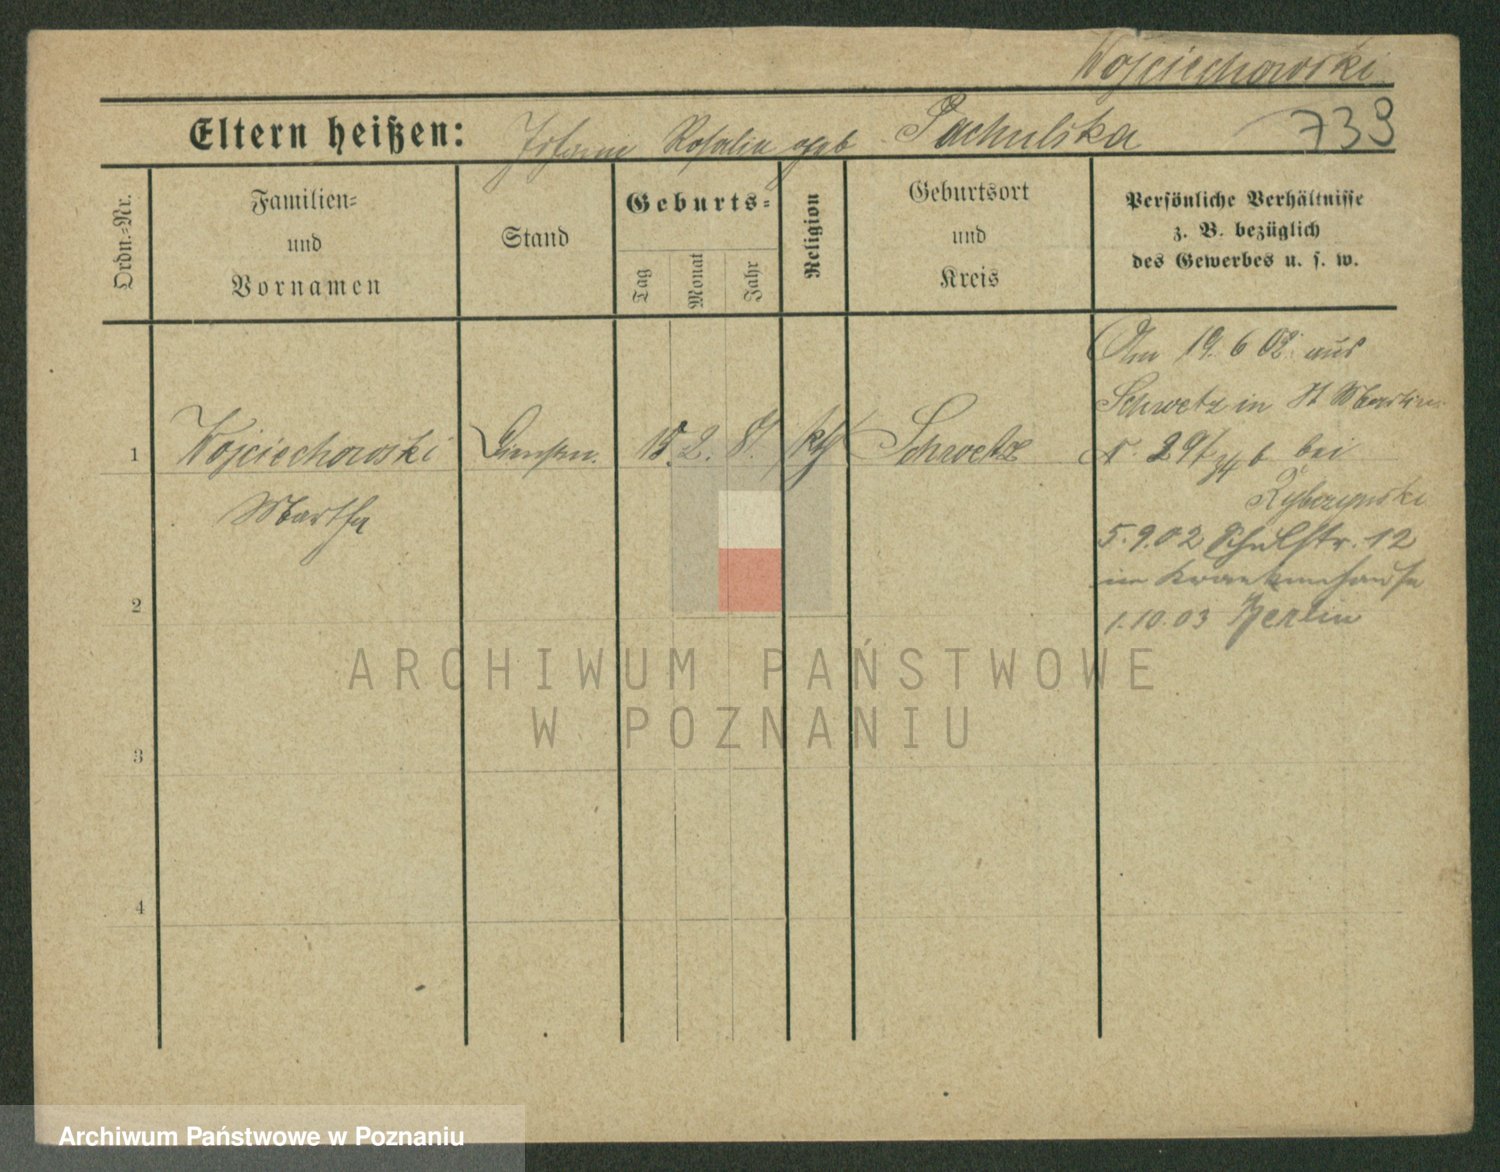 Wojciechowski
Eltern heißen: Rosalia geb Pachulska 739
Ordn.=Nr.
Familien=
und
Vornamen
Stand
Geburts=
Tag
Monat
Jahr
Religion
Geburtsort
und
Kreis
Persönliche Verhältnisse
z. B. bezüglich
des Gewerbes u. s. w.
1 Wojciechowski 15. 2. 81. kth Schwetz
Martha
Am 19. 6 02. aus
Schwetz in St Martin
bei
5. 9. 02 Schulstr. 12
im Krankenhause
1. 10. 03 Berlin
2
3
4
ARCHIWUM PAŃSTWOWE
W POZNANIU
Archiwum Państwowe w Poznaniu